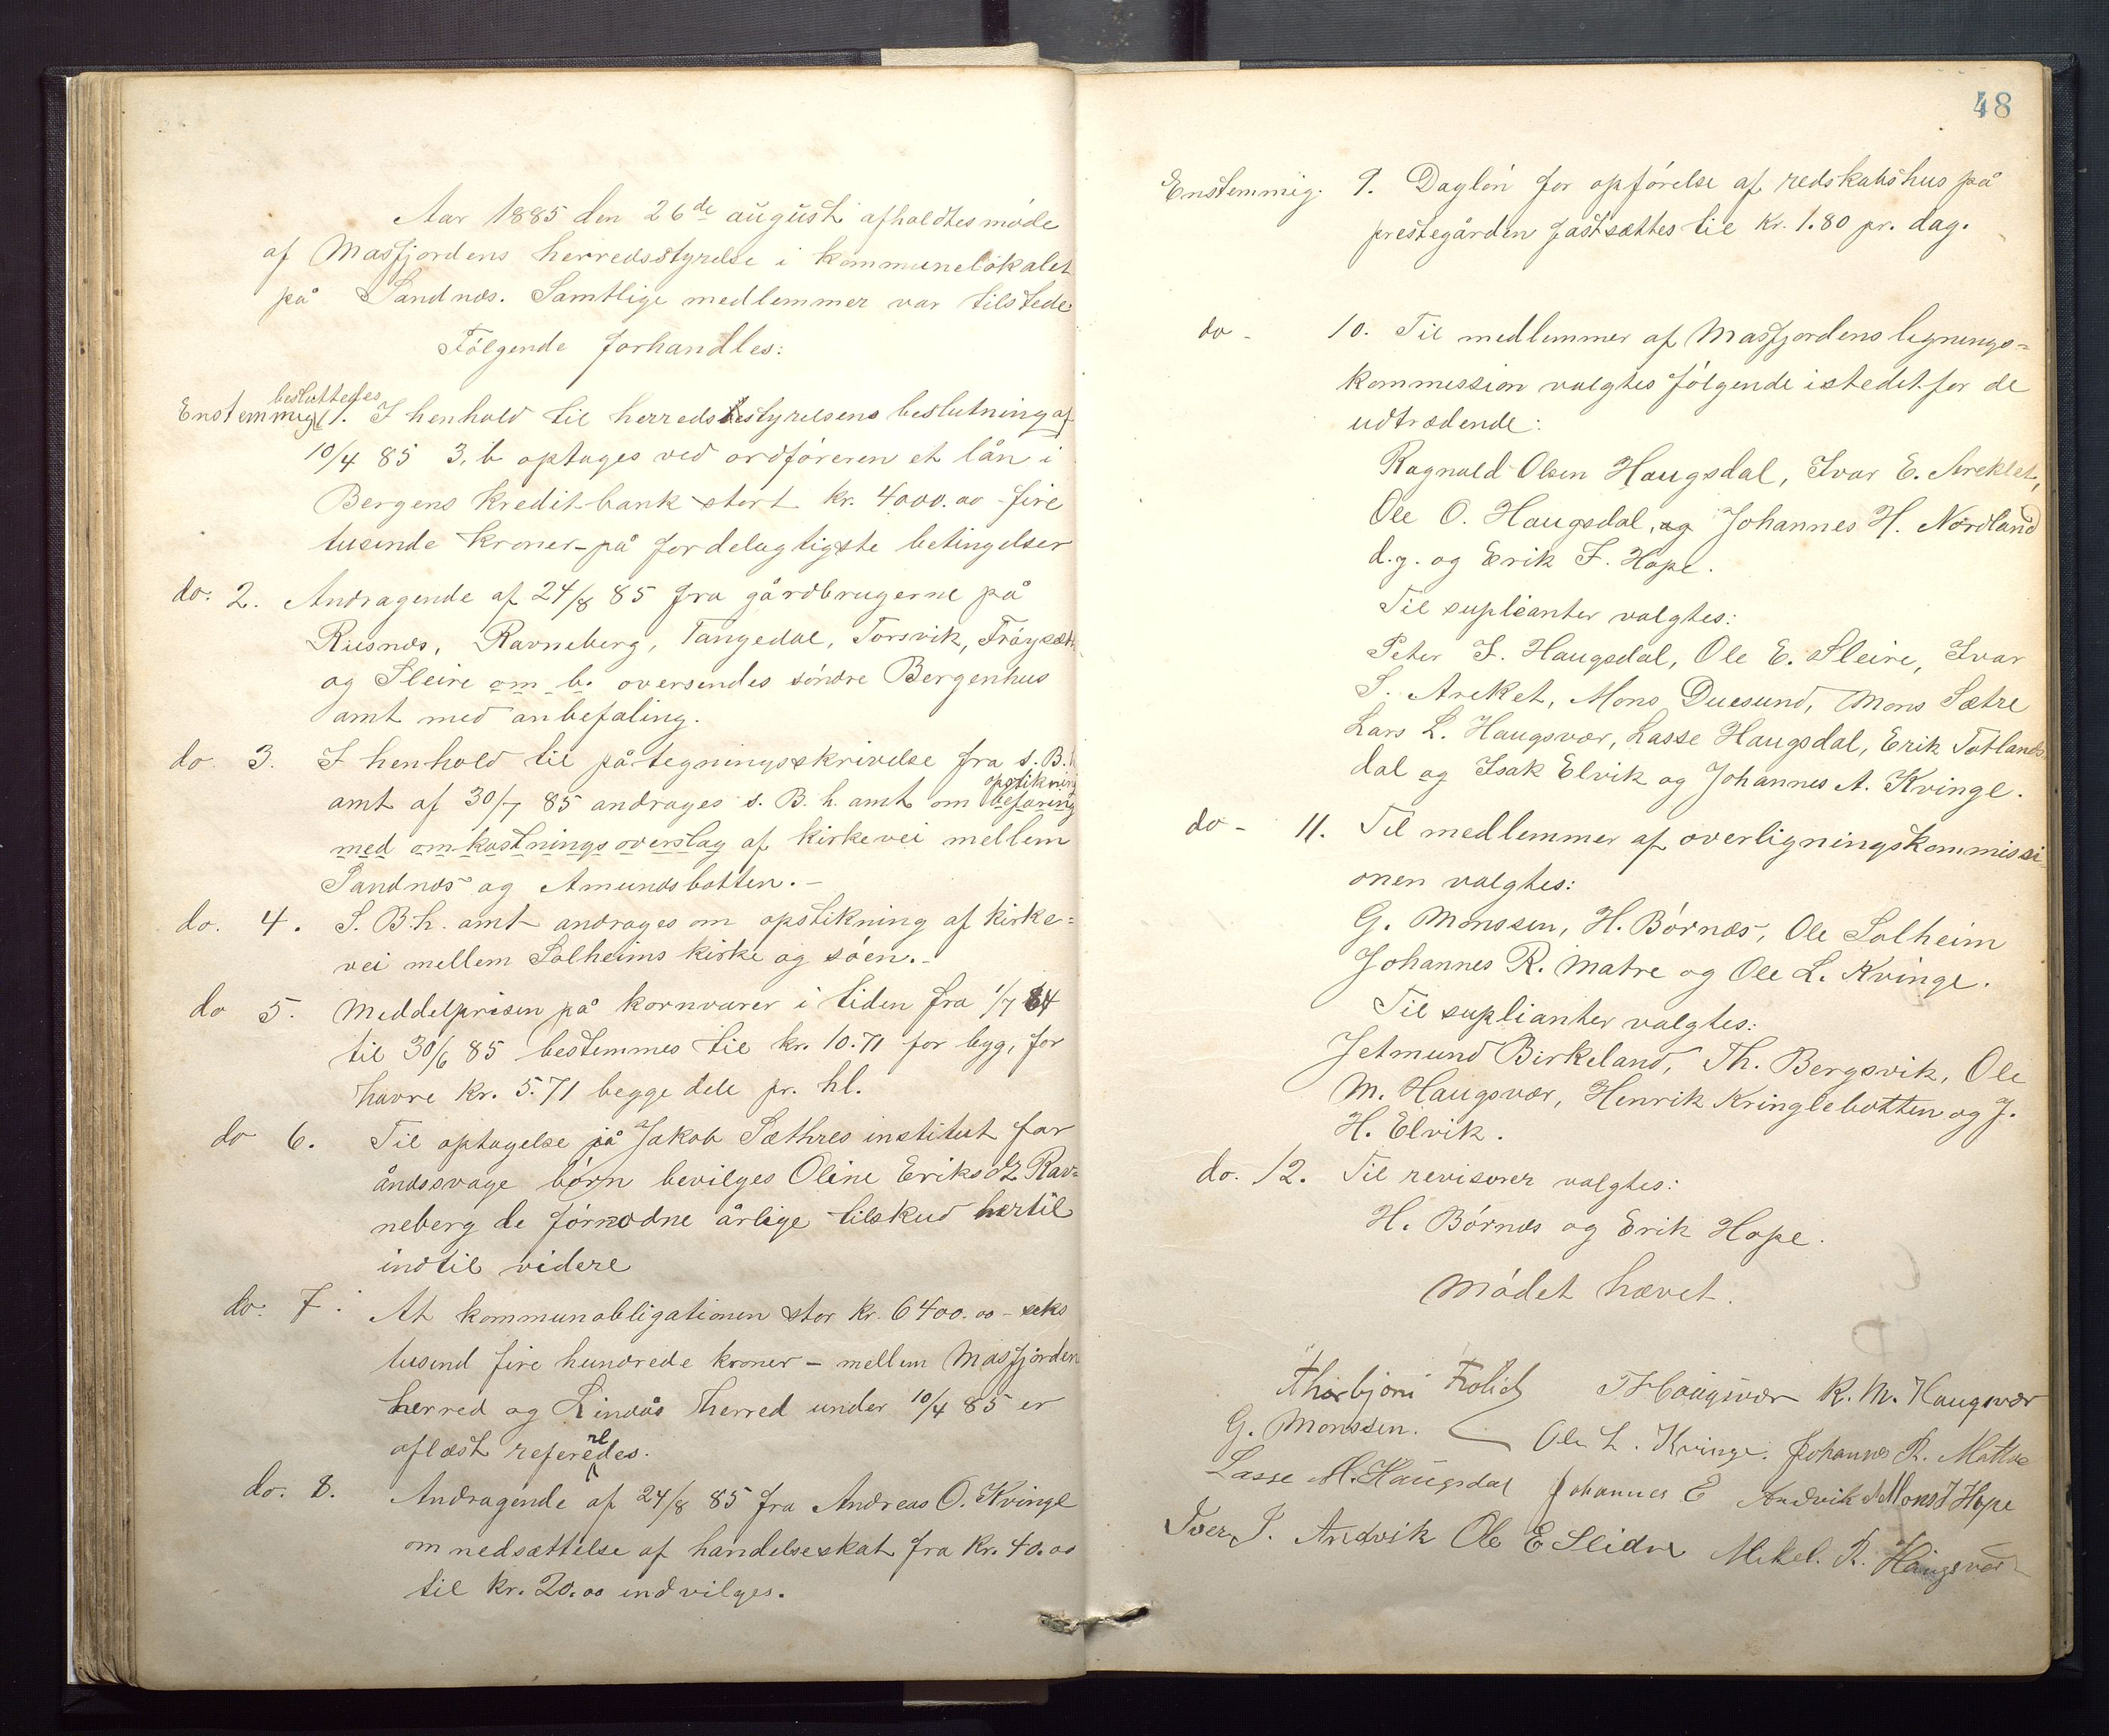 Aar 1885 den 26de august afholdtes møde
af Masfjordens herredsstyrelse i kommunelokalet
på Sandnæs. Samtlige medlemmer var tilstede
Følgende forhandles:
besluttedes
Enstemmig 1. I henhold til herredsbestyrelsens beslutning af
10/4 85 3, b optages ved ordføreren et lån i
Bergens Kredit-bank stort kr. 4000.00 - fire
tusende kroner - på fordelagtigste betingelser
do. 2. Andragende af 24/8 85 fra gårdbrugerne på
Risnæs, Ravneberg, Tangedal, Torsvik, Frøyset
og Sleire om b. oversendes søndre Bergenhus
amt med anbefaling.
do. 3. I henhold til påtegningsskrivelse fra s. B. h
opstikning
amt af 30/7 85 andrages s. B. h. amt om befaring
med omkostningsoverslag af kirkevei mellem
Sandnæs og Amundsbotten. -
do. 4. S. B. h. amt andrages om opstikning af kirke=
vei mellem Solheims kirke og søen. -
do 5. Meddelprisen på kornvarer i tiden fra 1/7 84
til 30/6 85 bestemmes til kr. 10.71 for byg, for
havre kr. 5.71 begge dele pr. hl.
do 6. Til optagelse på Jakob Sæthres institut for
åndssvage børn bevilges Oline Eriksdr Rav=
neberg de førnødne årlige tilskud hertil
indtil videre
do. 7. At kommunobligationen stor kr. 6400.00 - seks
tusind fire hundrede kroner - mellem Masfjorden
herred og Lindås herred under 10/4 85 er
oplæst referedes.
re
do. 8. Andragende af 24/8 85 fra Andreas O. Kvinge
om nedsættelse af handelsskat fra kr. 40.00
til kr. 20.00 indvilges.
48
Enstemmig. 9. Dagløn for opførelse af redskabshus på
prestegården fastsættes til kr. 1.80 pr. dag.
do - 10. Til medlemmer af Masfjordens legnings=
kommission valgtes følgende istedetfor de
udtrædende:
Ragnald Olsen Haugsdal, Ivar E. Areklet,
Ole O. Haugsdal, og Johannes H. Nordland
d.y. og Erik F. Hope.
Til suplianter valgtes:
Peter I. Haugsdal, Ole E. Sleire, Ivar
S. Areket, Mons Duesund, Mons Sætre
Lars L. Haugsvær, Lasse Haugsdal, Erik Totlands
dal og Isak Elvik og Johannes A. Kvinge.
do - 11. Til medlemmer af overligningskommissi
onen valgtes:
G. Monssen, H. Børnæs, Ole Solheim
Johannes R. Matre og Ole L. Kvinge.
Til suplianter valgtes:
Jetmund Birkeland, Th. Bergsvik, Ole
M. Haugsvær, Henrik Kringlebotten og J.
H. Elvik.
do. 12. Til revisorer valgtes:
H. Børnæs og Erik Hope.
Mødet hævet.
Thorbjørn Frølich Haugsvær R. M. Haugsvær
G. Monssen. Ole L. Kvinge. Johannes R. Mattre
Lasse M. Haugsdal Johannes E Andvik Mons I Hope
Iver I. Andvik Ole E Sleire Mikel. R. Haugsvær